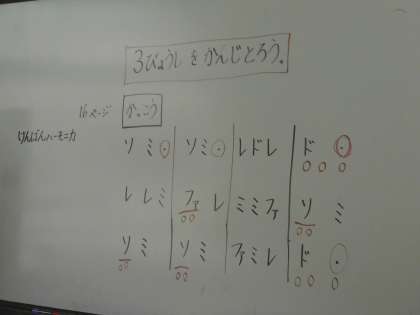 3びょうしをかんじとろう。
16ページ かっこう
けんばんハーモニカ
ソミ・ ソミ・ レドレ ド・
レレミ ファレ ミミファ ソミ
ソミ ソミ ファミレ ド・